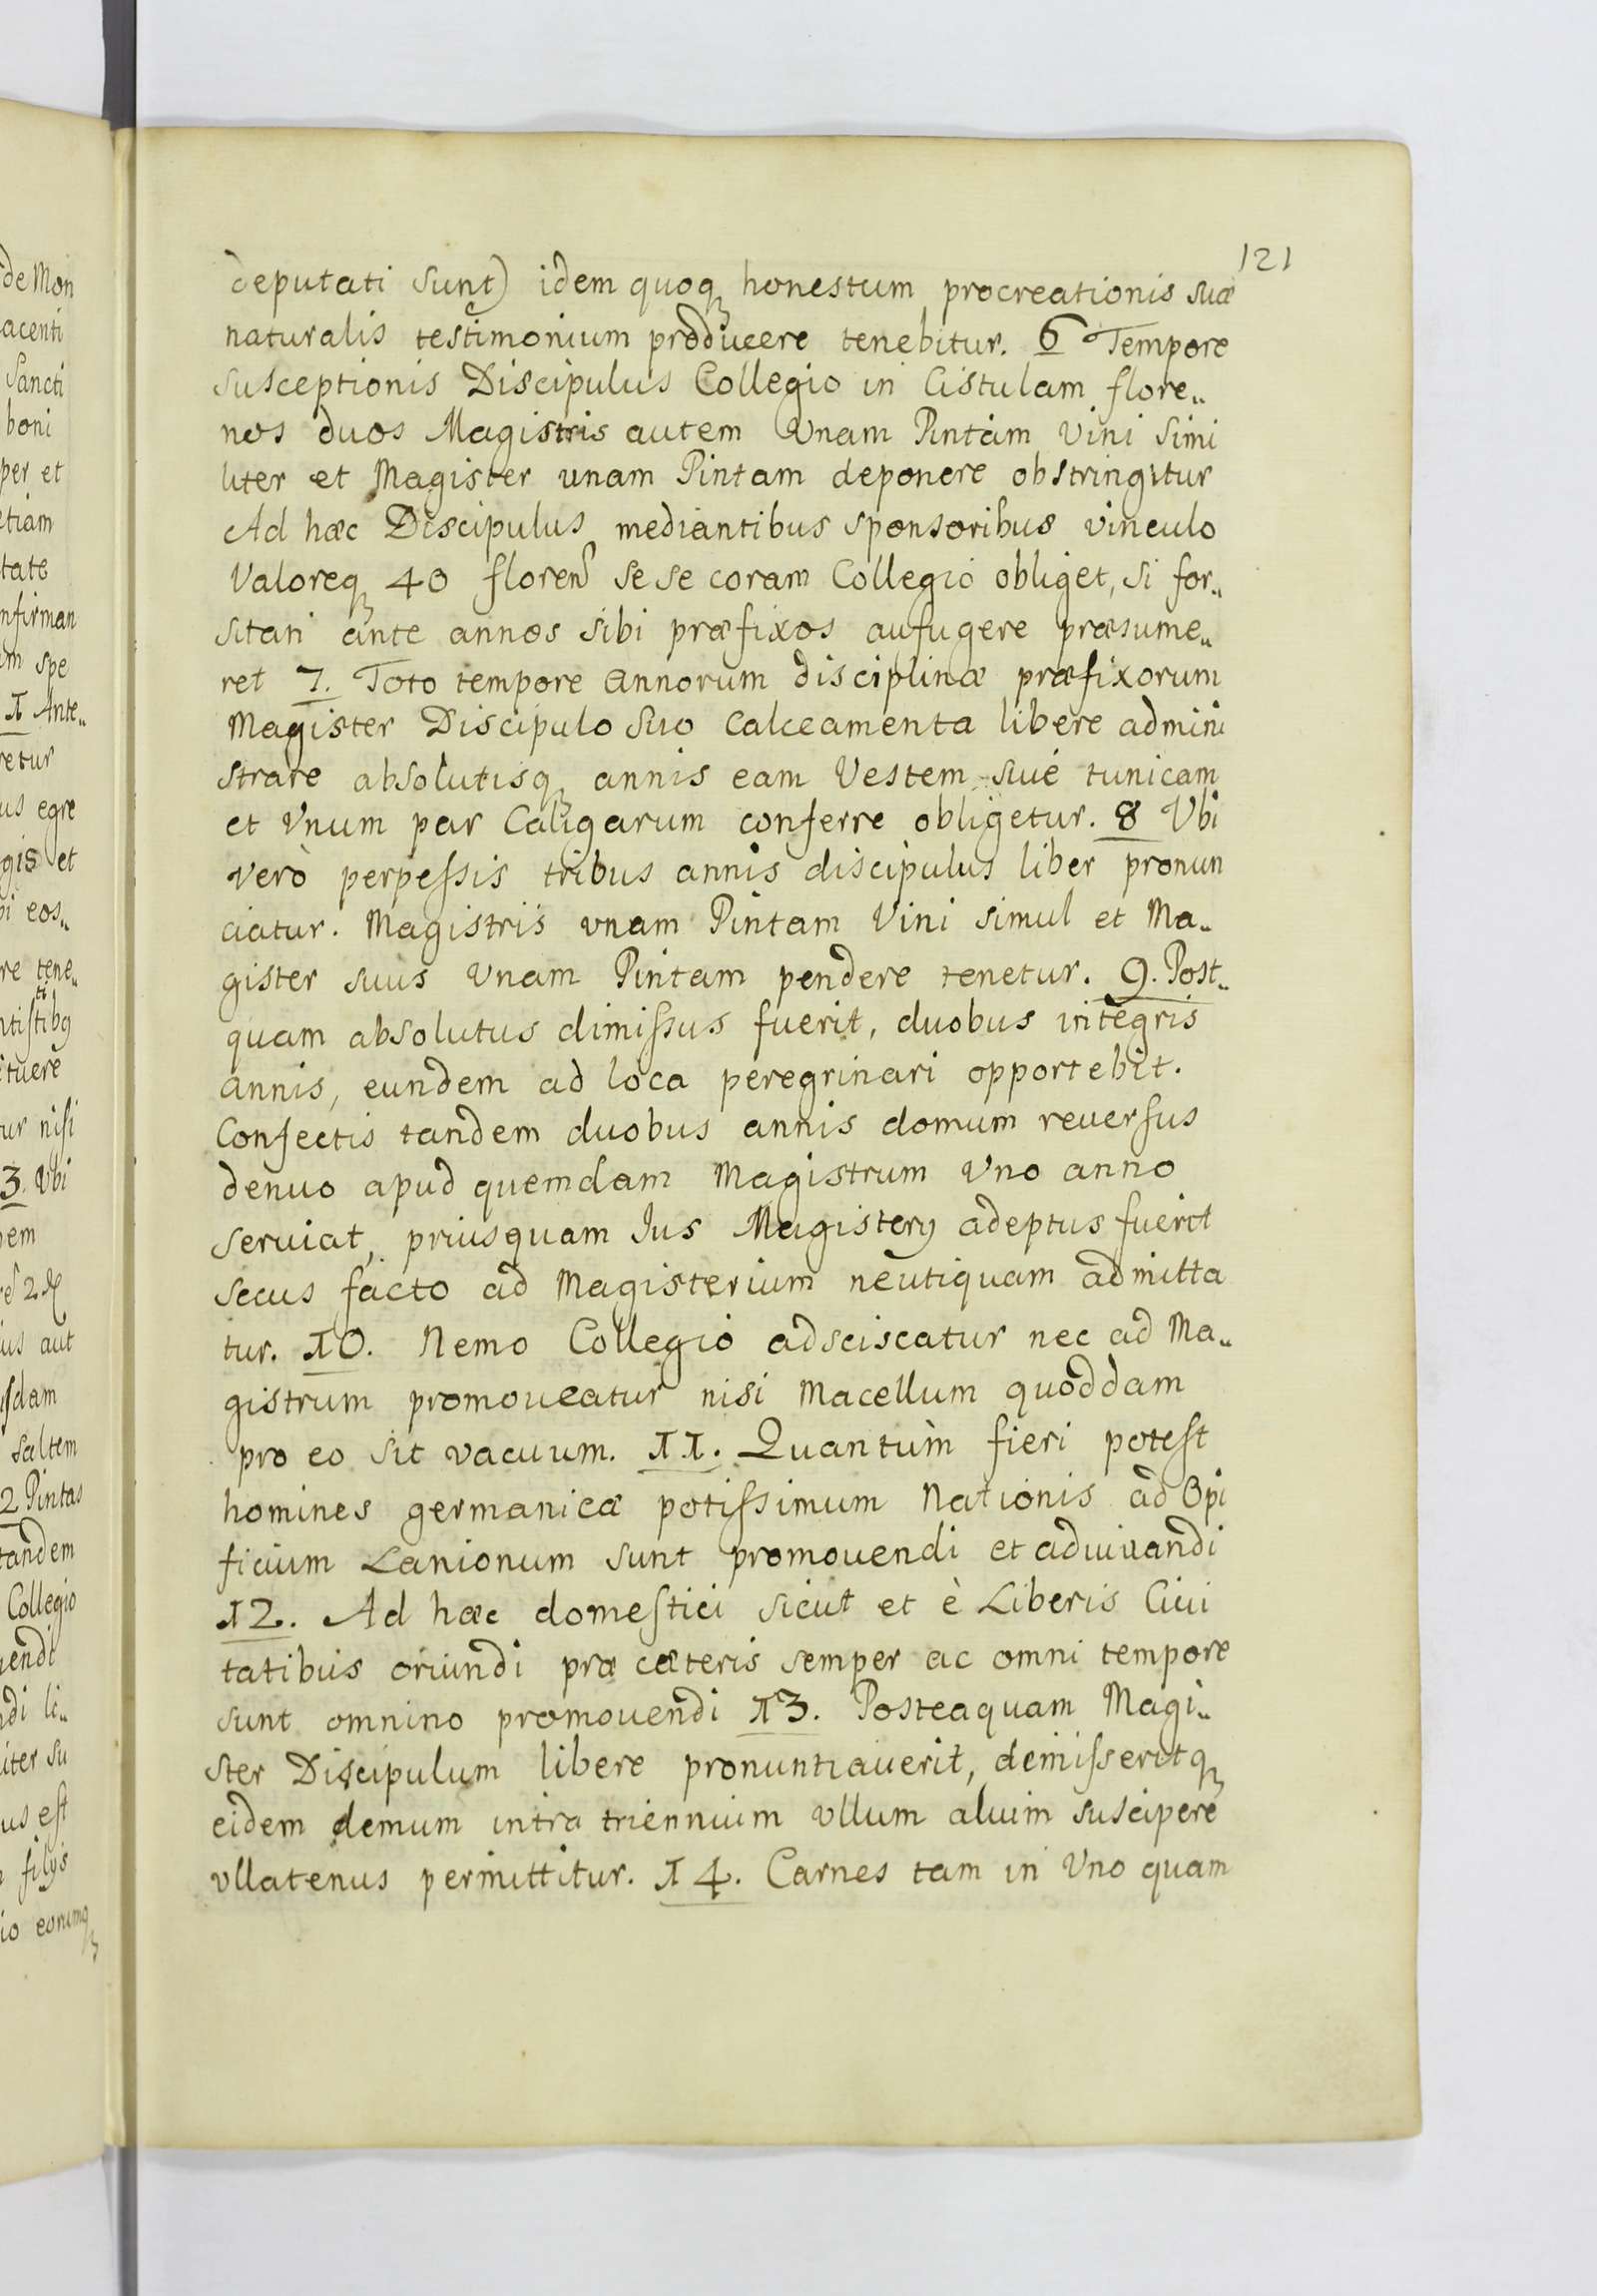 121
deputati sunt) idem quoq honestum procreationis suæ
naturalis testimonium producere tenebitur. 6 Tempore
susceptionis Discipulus Collegio in Cistulam flore„
nos duos Magistris autem Vnam Pintam Vini simi
liter et Magister unam Pintam deponere obstringitur
Ad hæc Discipulus mediantibus sponsoribus vinculo
Valoreq 40 floren se se coram Collegio obliget, si for„
sitan ante annos sibi præfixos aufugere præsume„
ret 7. Toto tempore annorum disciplinæ præfixorum
Magister Discipulo suo calceamenta libere admini
strare absolutisq annis eam Vestem siue tunicam
et Vnum par Caligarum conferre obligetur. 8 Vbi
verò perpessis tribus annis discipulus liber pronun
ciatur. Magistris vnam Pintam Vini simul et Ma„
gister suus Vnam Pintam pendere tenetur. 9. Post„
quam absolutus dimissus fuerit, duobus integris
annis, eundem ad loca peregrinari opportebit.
Confectis tandem duobus annis domum reuersus
denuo apud quemdam Magistrum Vno anno
seruiat, priusquam Ius Magistery adeptus fuerit
secus facto ad Magisterium neutiquam admitta
tur. 10. Nemo Collegio adsciscatur nec ad Ma„
gistrum promoueatur nisi Macellum quoddam
pro eo sit vacuum. 11. Quantùm fieri potest
homines germanicæ potissimum Nationis ad Opi
ficium Lanionum sunt promouendi et adiuuandi
12. Ad hæc domestici sicut et è Liberis Ciui
tatibus oriundi præ cæteris semper ac omni tempore
sunt omnino promouendi 13. Posteaquam Magi„
ster Discipulum libere pronuntiauerit, demisseritq
eidem demum intra triennium vllum alium suscipere
vllatenus permittitur. 14. Carnes tam in Vno quam
de Mon
acenti
Sancti
boni
per et
etiam
tate
nfirman
m spe
1 Ante„
retur
us egre
gis et
eos„
re tene„
tuere
ur nisi
3. Vbi
em
us aut
sdam
saltem
2 Pintas
tandem
Collegio
endi
di li„
iter su
us est
filys
io eorumq